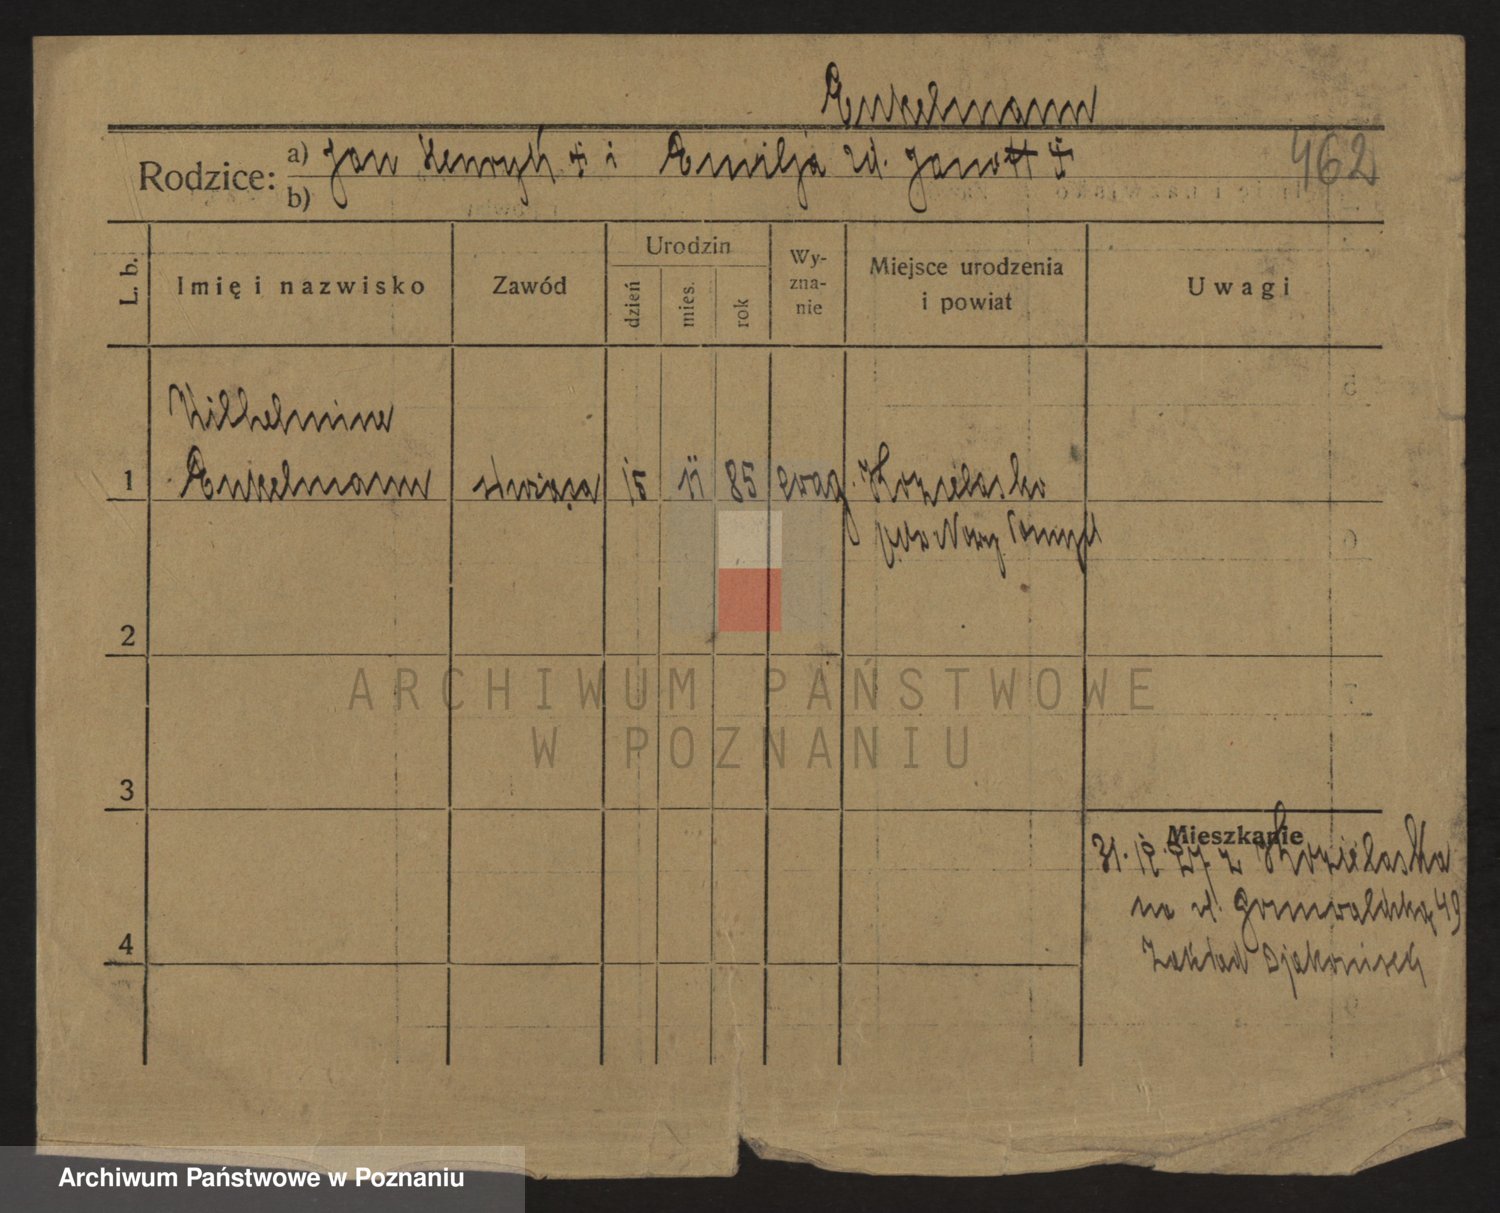 Enkelmann
Rodzice: a) Jan Henryk ‡ i Emilja zd. Janott ‡
b)
462
L. b.
Imię i nazwisko
Zawód
Urodzin
dzień
mies.
rok
Wy-
zna-
nie
Miejsce urodzenia
i powiat
Uwagi
Wilhelmine
1 Enkelmann 15 11 85 evag. Kozielasko
pow Nowy Tomyśl
2
3
4
Mieszkanie
31. 12. 27. z Kozielaska
na ul. Grunwaldzką 49
Zakład Djakonisek
ARCHIWUM PAŃSTWOWE
W POZNANIU
Archiwum Państwowe w Poznaniu